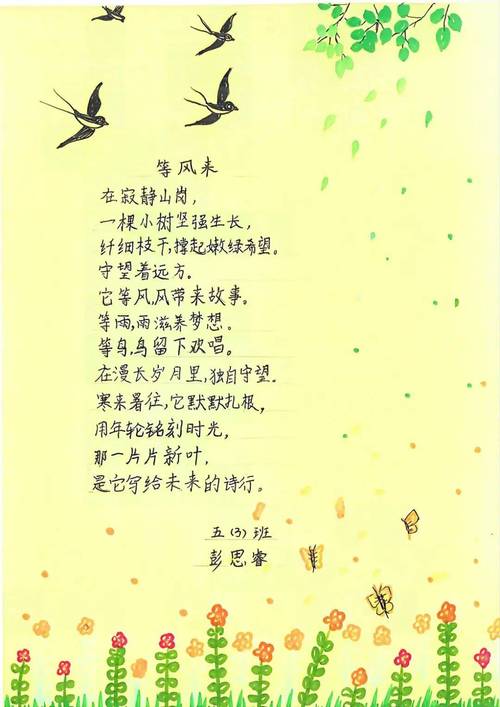 等风来
在寂静山岗，
一棵小树坚强生长，
纤细枝干，撑起嫩绿希望。
守望着远方。
它等风，风带来故事。
等雨，雨滋养梦想。
等鸟，鸟留下欢唱。
在漫长岁月里，独自守望。
寒来暑往，它默默扎根，
用年轮铭刻时光，
那一片片新叶，
是它写给未来的诗行。
五（3）班
彭思睿